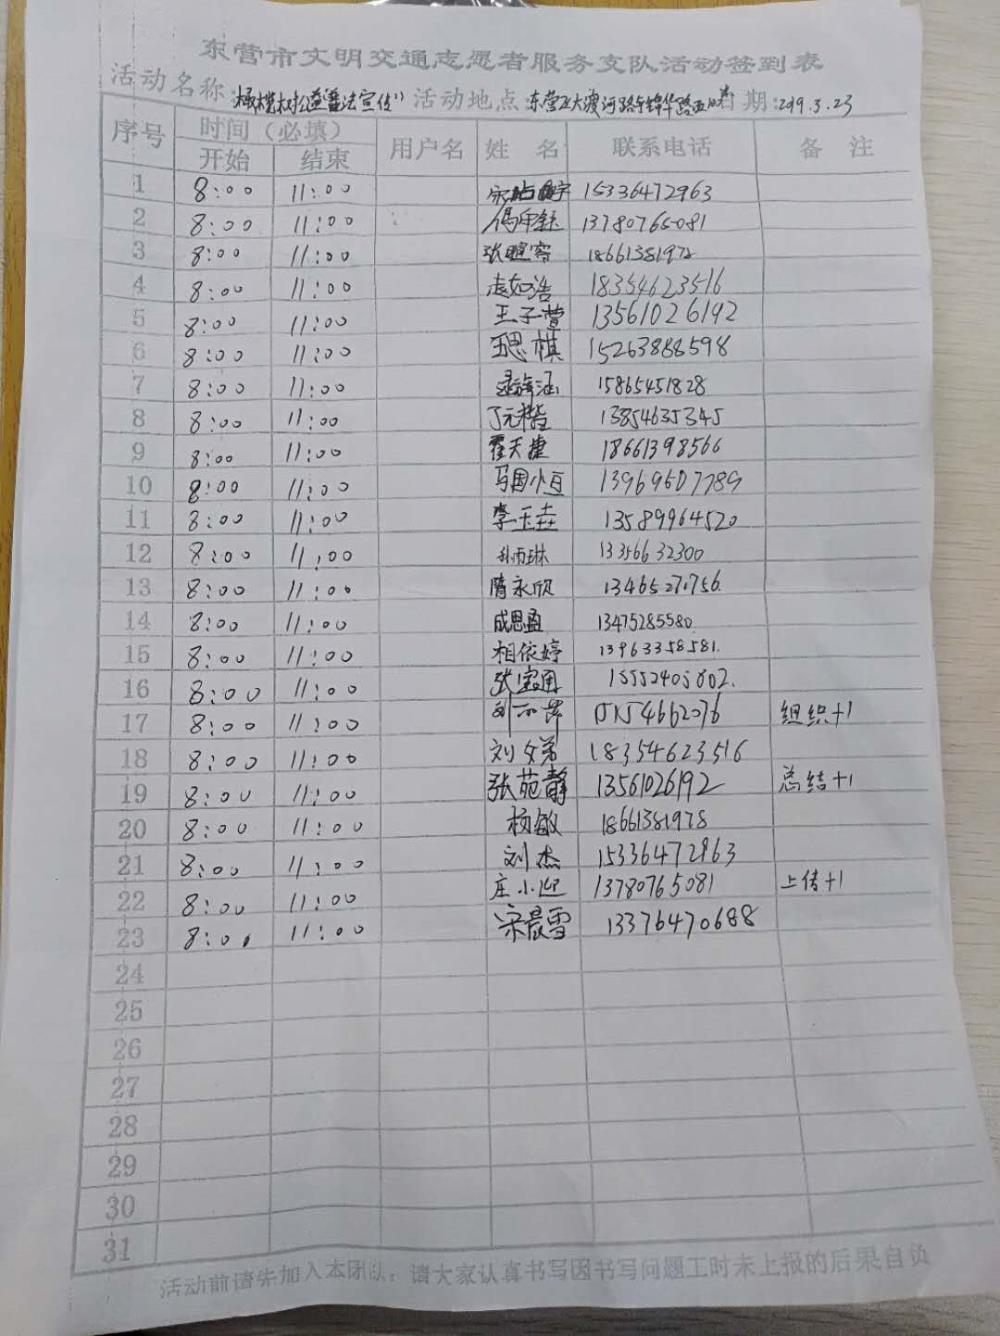 东营市文明交通志愿者服务支队活动签到表
活动名称:橄榄树公益普法宣传" 活动地点:东营区大渡河路与锦华路 日期:2019.3.23
序号 时间(必填) 用户名 姓 名 联系电话 备 注
开始 结束
1 8:00 11:00 15336472963
2 8:00 11:00 13780765081
3 8:00 11:00 张暄容 18661381978
4 8:00 11:00 孟如浩 18354623516
5 8:00 11:00 王子萱 13561026192
6 8:00 11:00 王思棋 15263888598
7 8:00 11:00 15865451828
8 8:00 11:00 丁元楷 13854635345
9 8:00 11:00 霍天捷 18661398566
10 8:00 11:00 马国小亘 13969607789
11 8:00 11:00 李玉垚 13589964520
12 8:00 11:00 孙雨琳 13356632300
13 8:00 11:00 隋永欣 13465271756
14 8:00 11:00 成思盈 13475285580
15 8:00 11:00 相依婷 13963358581.
16 8:00 11:00 张宝国 15552405802.
17 8:00 11:00 15154662076 组织+1
18 8:00 11:00 刘文弟 18354623516
19 8:00 11:00 张苑静 13561026192 总结+1
20 8:00 11:00 杨敏 18661381978
21 8:00 11:00 刘杰 15336472963
22 8:00 11:00 庄小迎 13780765081 上传+1
23 8:00 11:00 宋晨雪 13376470688
24
25
26
27
28
29
30
31
活动前请先加入本团队,请大家认真书写因书写问题工时未上报的后果自负